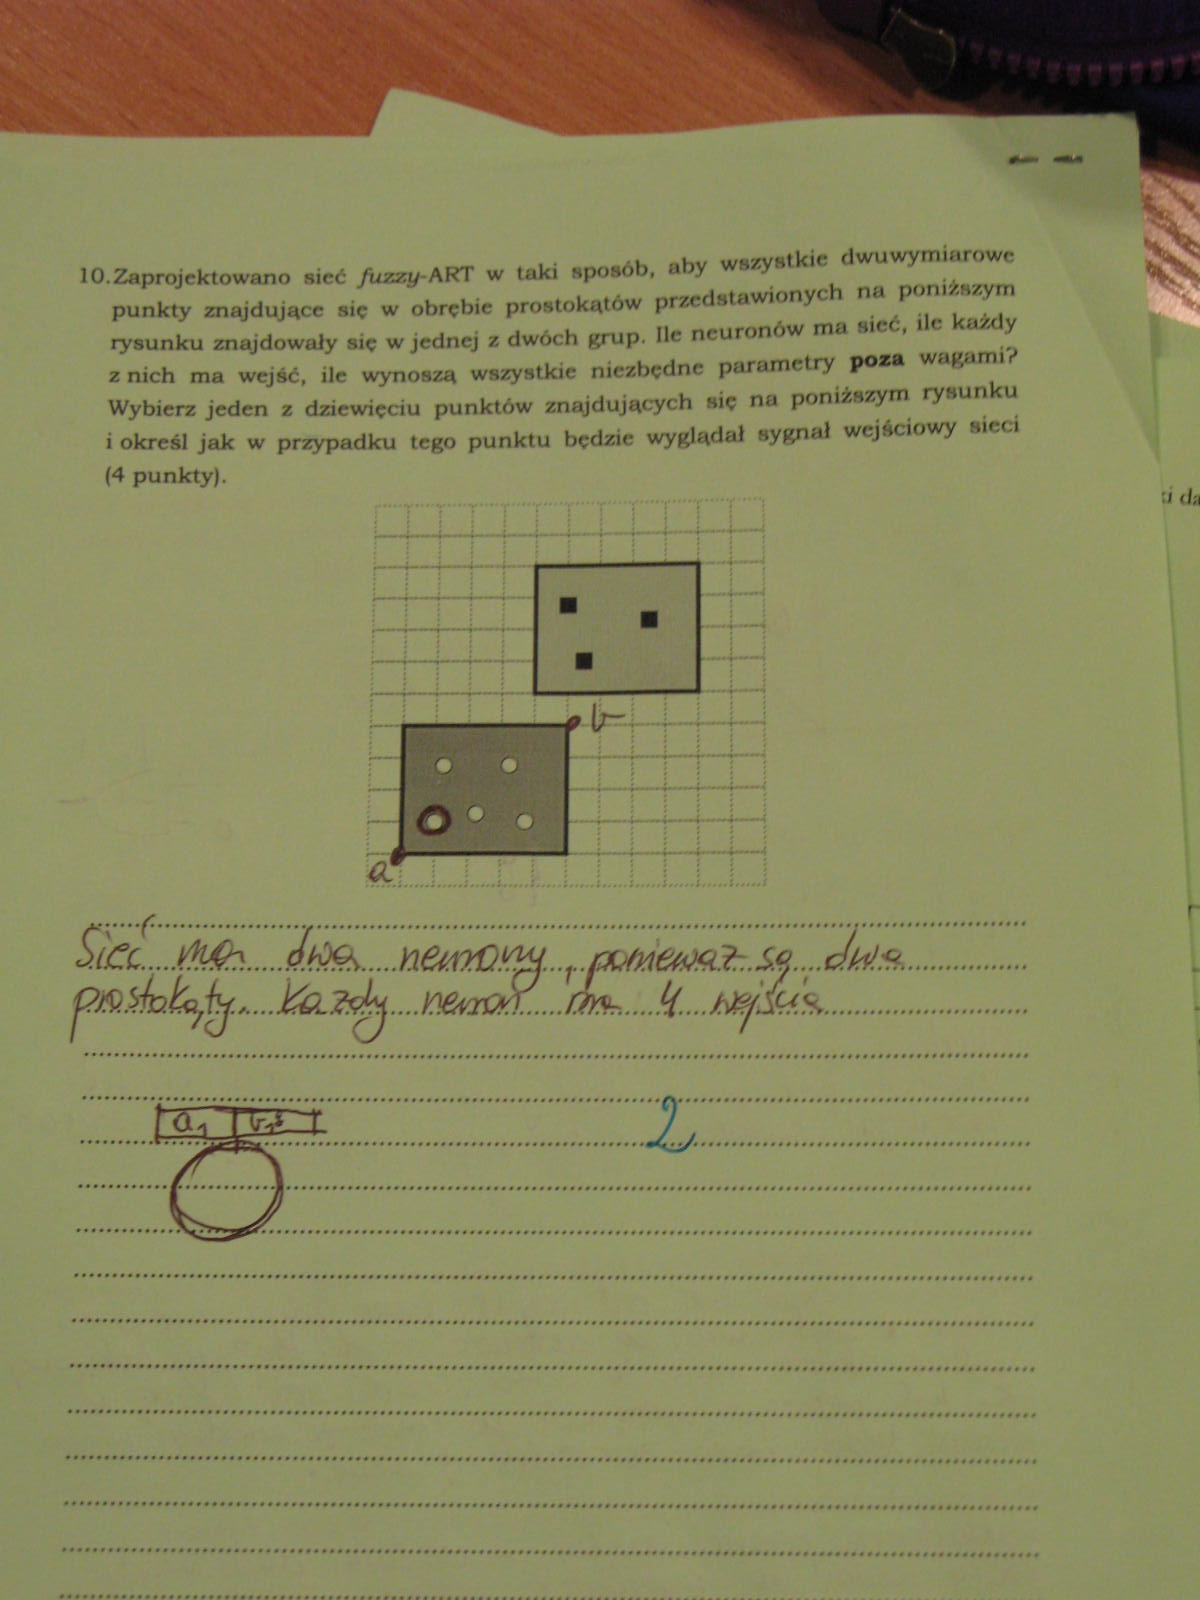 10.Zaprojektowano sieć fuzzy-ART w taki sposób, aby wszystkie dwuwymiarowe
punkty znajdujące się w obrębie prostokątów przedstawionych na poniższym
rysunku znajdowały się w jednej z dwóch grup. Ile neuronów ma sieć, ile każdy
z nich ma wejść, ile wynoszą wszystkie niezbędne parametry poza wagami?
Wybierz jeden z dziewięciu punktów znajdujących się na poniższym rysunku
i określ jak w przypadku tego punktu będzie wyglądał sygnał wejściowy sieci
(4 punkty).
ki da
b
a
Sieć ma dwa neurony, ponieważ są dwa
prostokąty. Każdy neuron ma 4 wejścia
a1
2